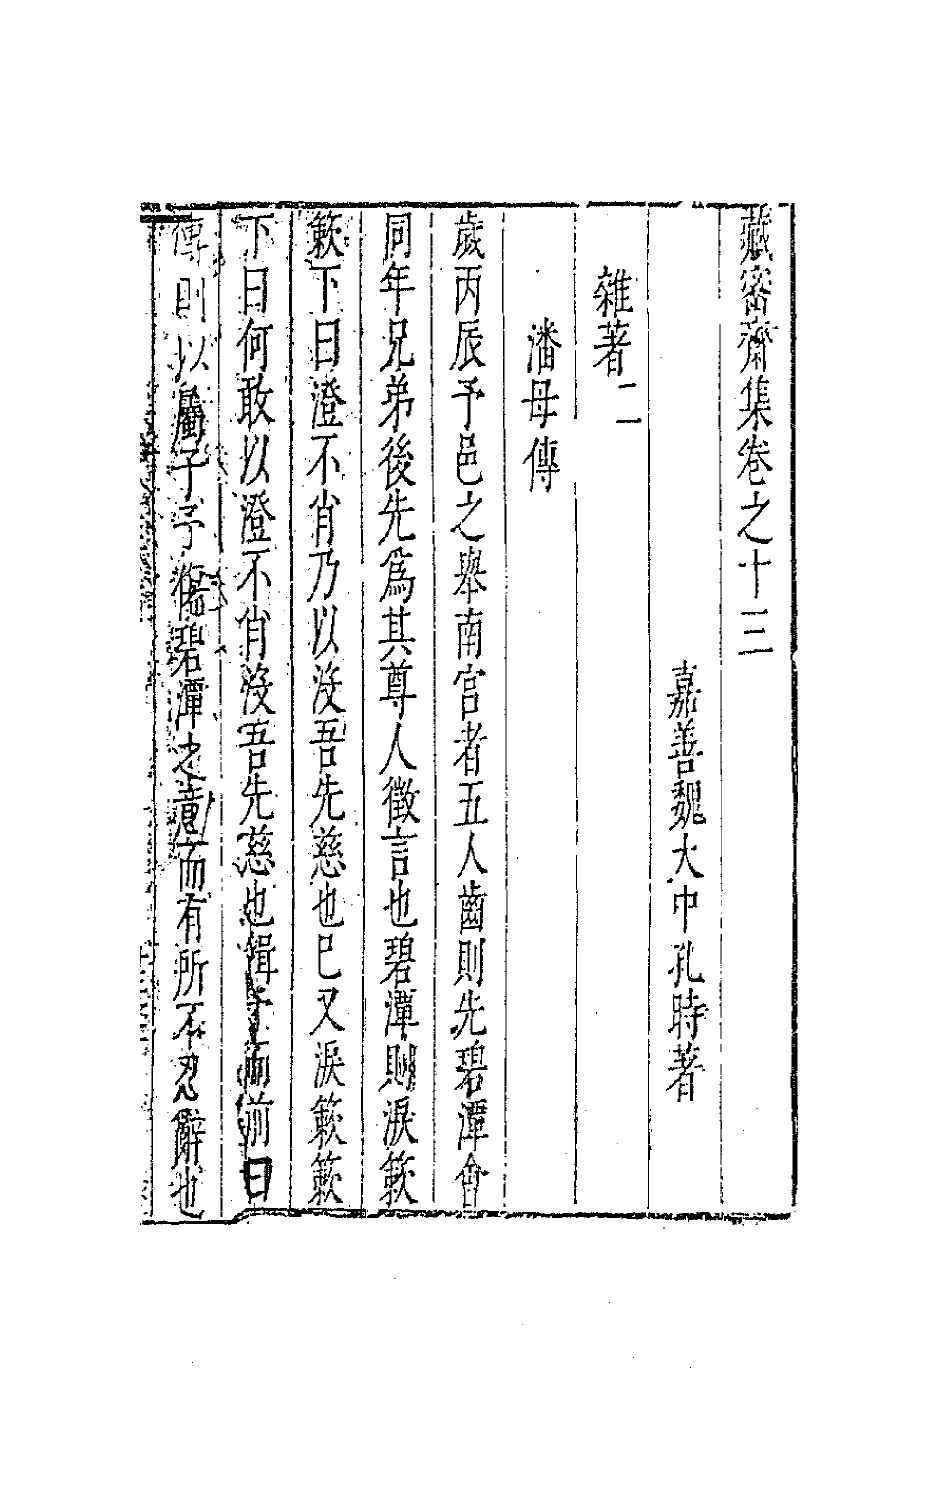 藏密齋集卷之十三
嘉善魏大中孔時著
雜著二
潘母傳
歲丙辰予邑之舉南宮者五人齒則先碧潭會
同年兄弟後先爲其尊人徵言也碧潭則淚簌
簌下曰澄不肖乃以沒吾先慈也已又淚簌簌
下曰何敢以澄不肖沒吾先慈也緝 而前曰
傳則以屬子予 碧潭之意而有所不忍辭也